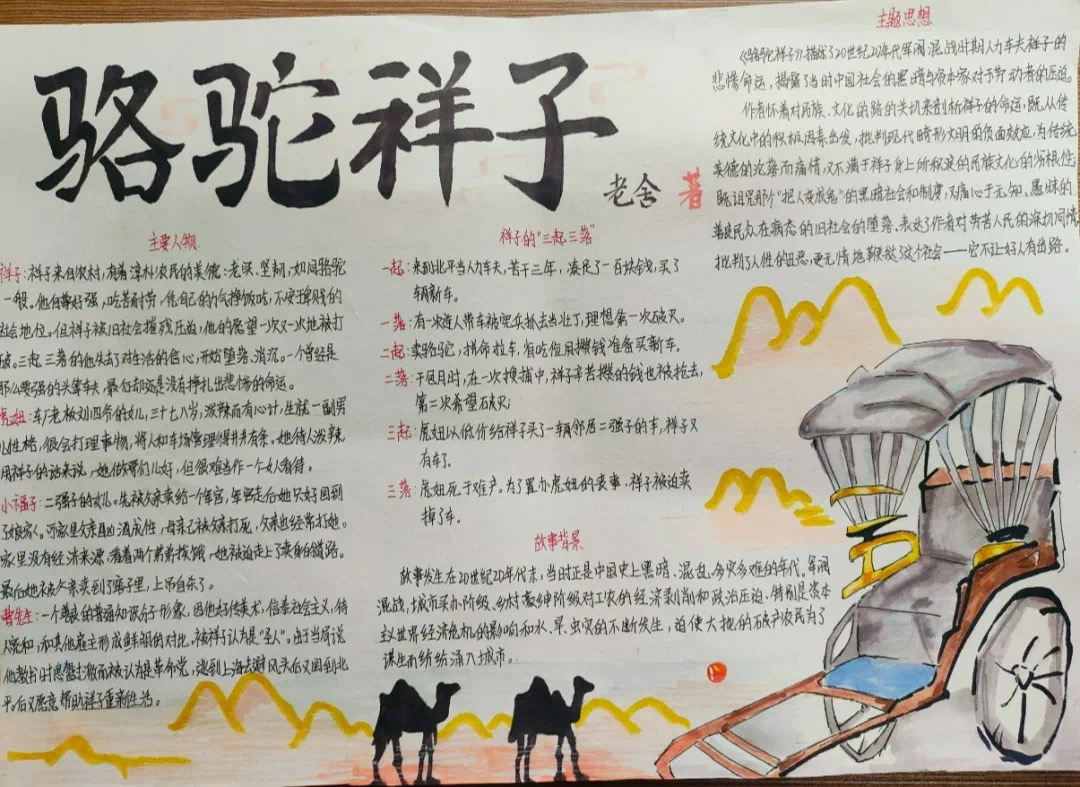 骆驼祥子
老舍 著
主要人物
祥子：祥子来自农村，有着淳朴农民的美德：老实、坚韧，如同骆驼
一般。他自尊好强，吃苦耐劳，凭自己的力气挣饭吃，不安于卑贱的
社会地位。但祥子被旧社会摧残压迫，他的愿望一次又一次地被打
破。三起三落的他失去了对生活的信心，开始堕落、消沉。一个曾经是
那么要强的头等车夫，最后却还是没有挣扎出悲惨的命运。
虎妞：车厂老板刘四爷的女儿，三十七八岁，泼辣而有心计，生就一副男
儿性格，很会打理事物，将人和车场管理得井井有条。她待人泼辣，
用祥子的话来说，她做哥们儿好，但很难当作一个女人看待。
小福子：二强子的女儿。先被父亲卖给一个军官，军官走后她只好回到
了娘家。可家里父亲酗酒成性，母亲已被父亲打死，父亲也经常打她。
家里没有经济来源，看着两个弟弟挨饿，她被迫走上了卖身的道路。
最后她被父亲卖到了窑子里，上吊自杀了。
曹先生：一个善良的普通知识分子形象，因他好传美术，信奉社会主义，待
人宽和，和其他雇主形成鲜明的对比，被祥子认为是“圣人”。由于当局说
他教书时思想过激而被认为是革命党，逃到上海去避风头后又回到北
平。后又愿意帮助祥子重新生活。
祥子的“三起三落”
一起：来到北平当人力车夫，苦干三年，凑足了一百块钱，买了
辆新车。
一落：有一次连人带车被宪兵抓去当壮丁，理想第一次破灭。
二起：卖骆驼，拼命拉车，省吃俭用攒钱准备买新车。
二落：干包月时，在一次搜捕中，祥子辛苦攒的钱也被抢去，
第二次希望破灭。
三起：虎妞以低价给祥子买了一辆邻居二强子的车，祥子又
有车了。
三落：虎妞死于难产，为了置办虎妞的丧事，祥子被迫卖
掉了车。
故事背景
故事发生在20世纪20年代末，当时正是中国史上黑暗、混乱、多灾多难的年代。军阀
混战，城市买办阶级、乡村豪绅阶级对工农的经济剥削和政治压迫，特别是资本
主义世界经济危机的影响和水、旱、虫灾的不断发生，迫使大批的破产农民为了
谋生而纷纷涌入城市。
主题思想
《骆驼祥子》描述了20世纪20年代军阀混战时期人力车夫祥子的
悲惨命运，揭露了当时中国社会的黑暗与资本家对于劳动者的压迫。
作者怀着对民族、文化的路的关切来剖析祥子的命运，既从传
统文化中的积极因素出发，批判现代畸形文明的负面效应，为传统
美德的沦落而痛惜，又不满于祥子身上所积淀的民族文化的劣根性；
既诅咒那个“把人变成鬼”的黑暗社会和制度，又痛心于无知、愚昧的
善良民众在病态的旧社会的堕落。表达了作者对劳苦人民的深切同情，
批判了人性的丑恶，更无情地鞭挞了这个社会——它不让好人有出路。